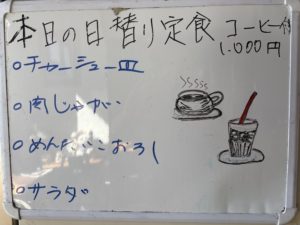 本日の日替り定食 コーヒー付
1.000円
○チャーシュー皿
○肉じゃが
○めんたいこおろし
○サラダ